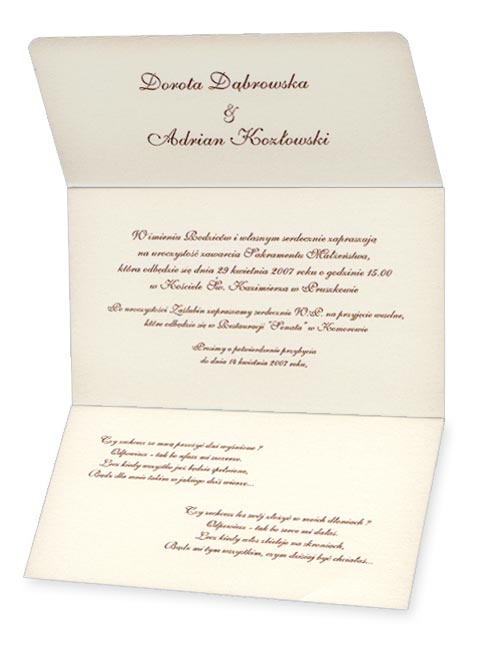 Dorota Dąbrowska
&
Adrian Kozłowski
W imieniu Rodziców i własnym serdecznie zapraszają
na uroczystość zawarcia Sakramentu Małżeństwa,
która odbędzie się dnia 29 kwietnia 2007 roku o godzinie 15.00
w Kościele Św. Kazimierza w Pruszkowie
Po uroczystości Zaślubin zapraszamy serdecznie W.P. na przyjęcie weselne,
które odbędzie się w Restauracji "Sonata" w Komorowie
Prosimy o potwierdzenie przybycia
do dnia 14 kwietnia 2007 roku,
Czy zechcesz ze mną przeżyć dni wyśnione ?
Odpowiesz - tak bo ufasz mi szczerze.
Lecz kiedy wszystko już będzie spełnione,
Bądź dla mnie takim w jakiego dziś wierzę...
Czy zechcesz los swój złożyć w moich dłoniach ?
Odpowiesz - tak bo serce mi dałaś.
Lecz kiedy włos zbieleje na skroniach,
Bądź mi tym wszystkim, czym dzisiaj być chciałaś...